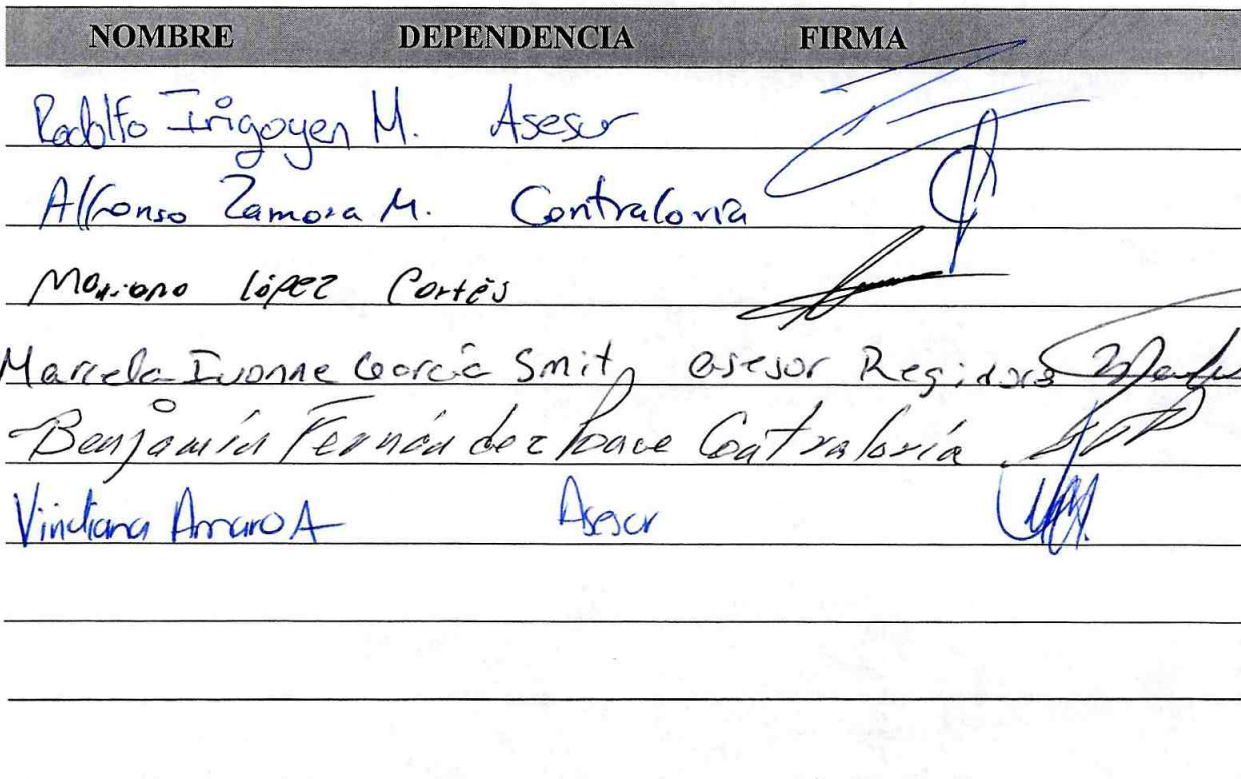 NOMBRE DEPENDENCIA FIRMA
Rodolfo Irigoyen M. Asesor
Alfonso Zamora M. Contraloria
Mariano López Cortés
Marcela Ivonne García Smit asesor Regidora
Benjamín Fernández Contraloría
Amaro A Asesor